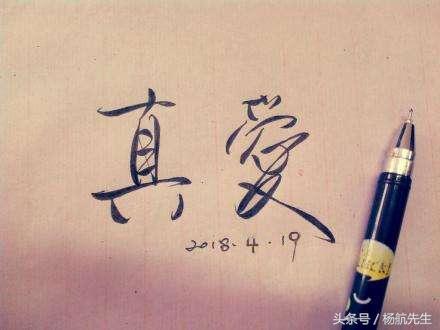 真爱
2018.4.19
头条号/杨航先生